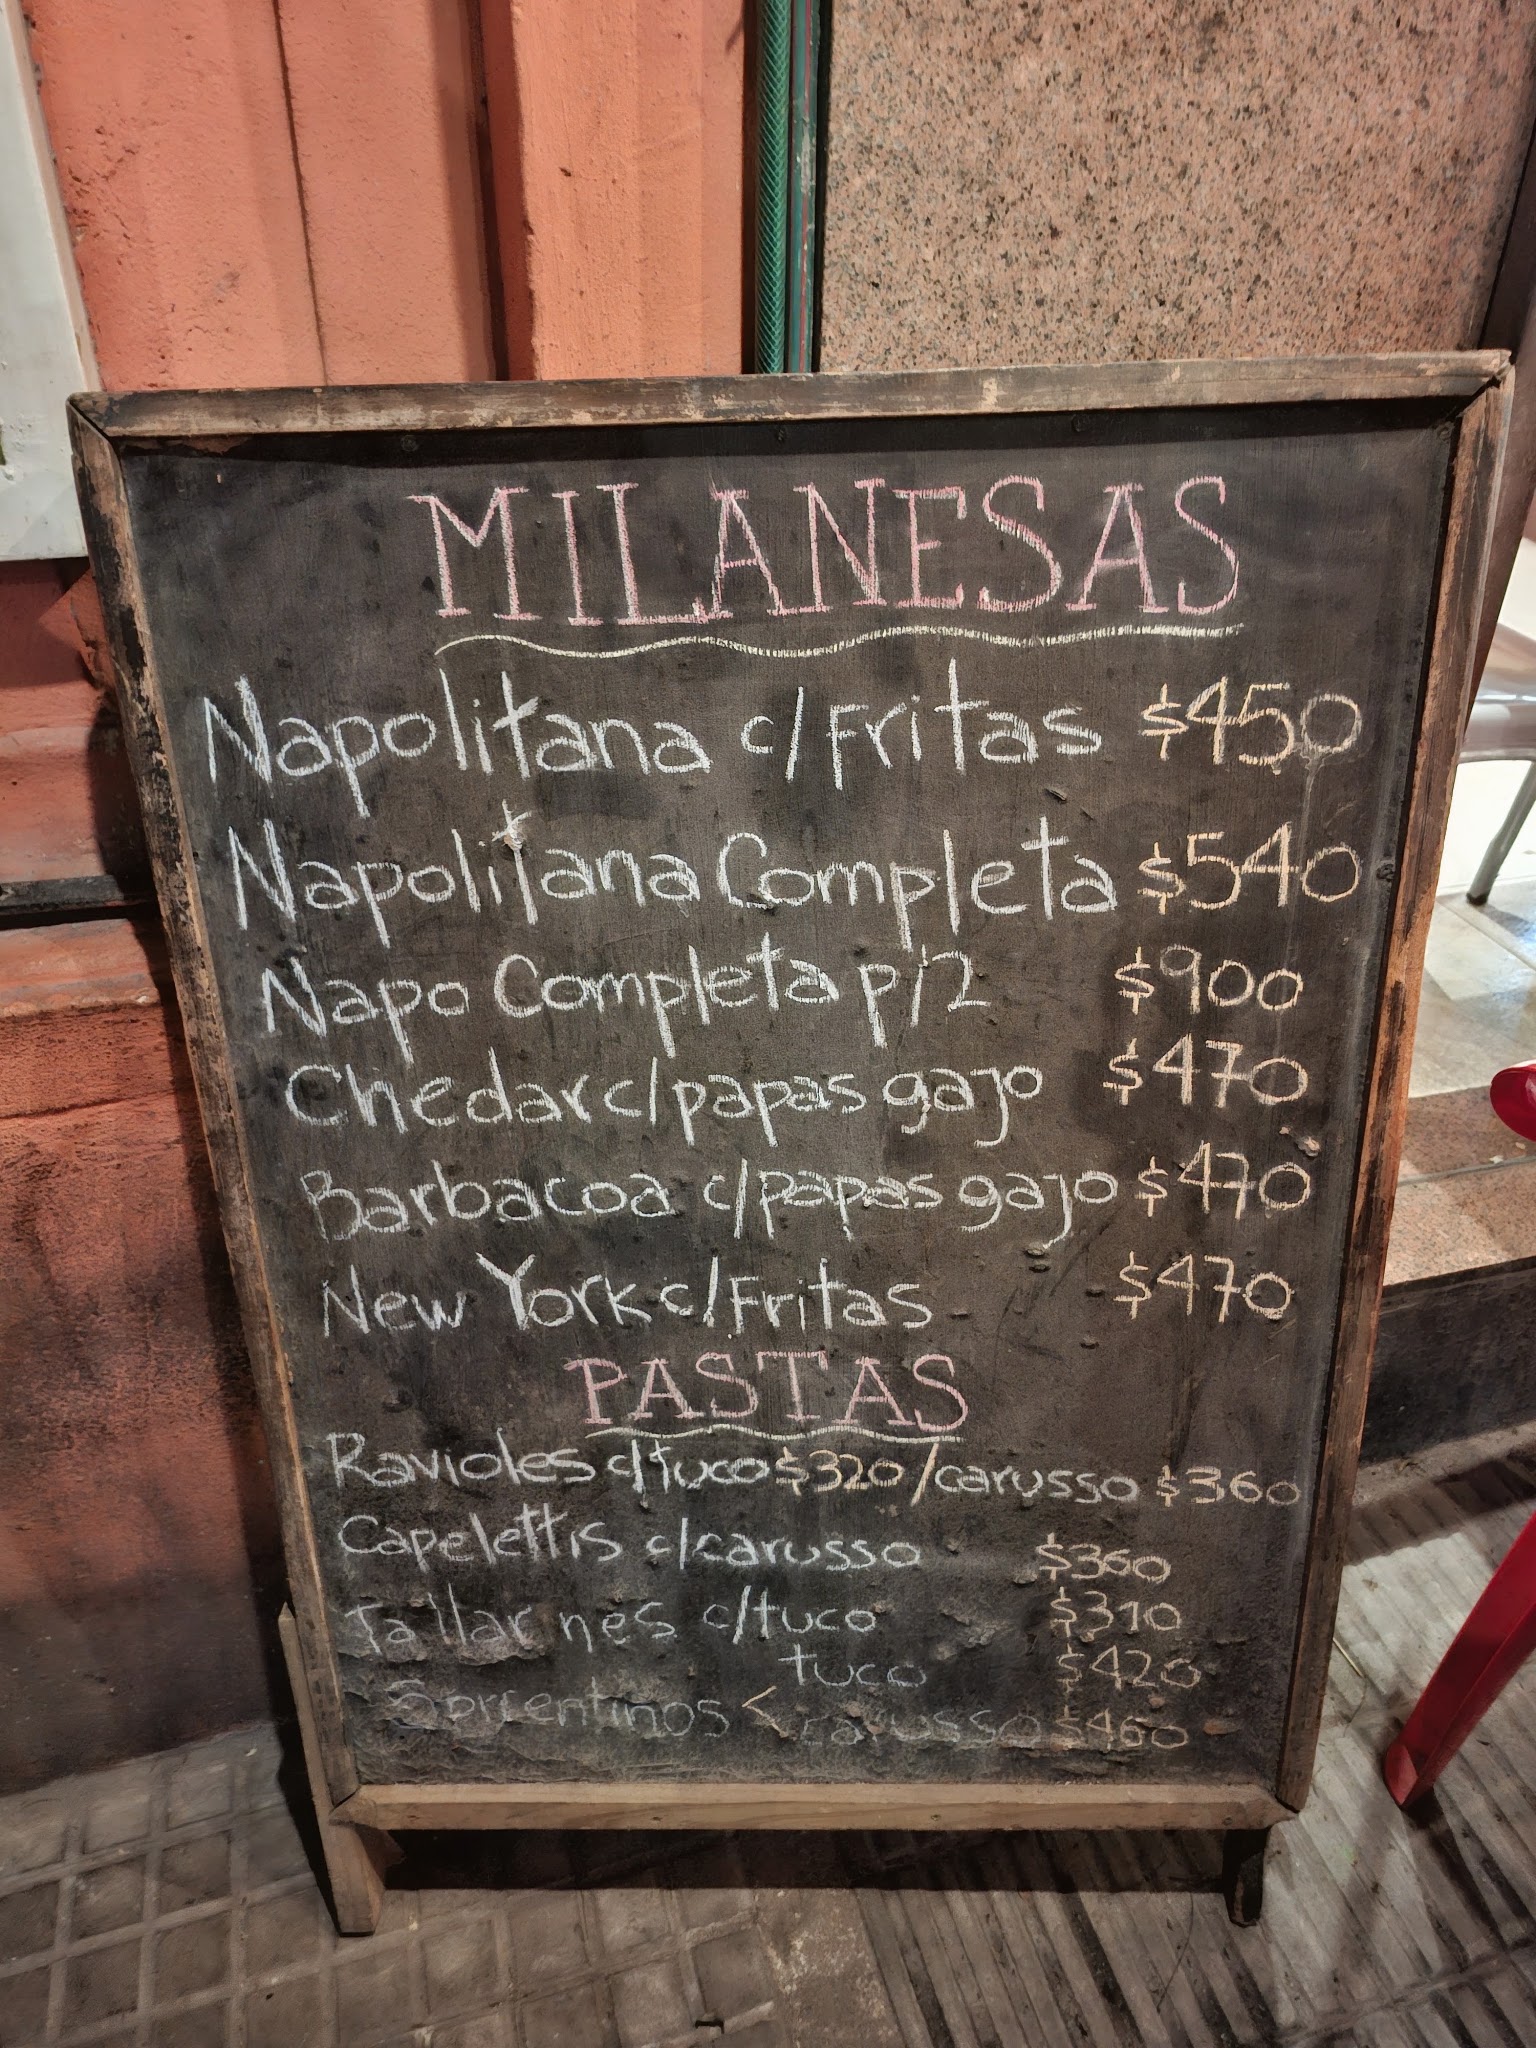 MILANESAS
Napolitana c/Fritas $450
Napolitana Completa $540
Napo Completa p/2 $900
Chedar c/papas gajo $470
Barbacoa c/papas gajo $470
New York c/Fritas $470
PASTAS
Ravioles c/tuco $320/carusso $360
Capelettis c/carusso $360
Tallarines c/tuco $310
tuco $420
Sorrentinos < carusso $460